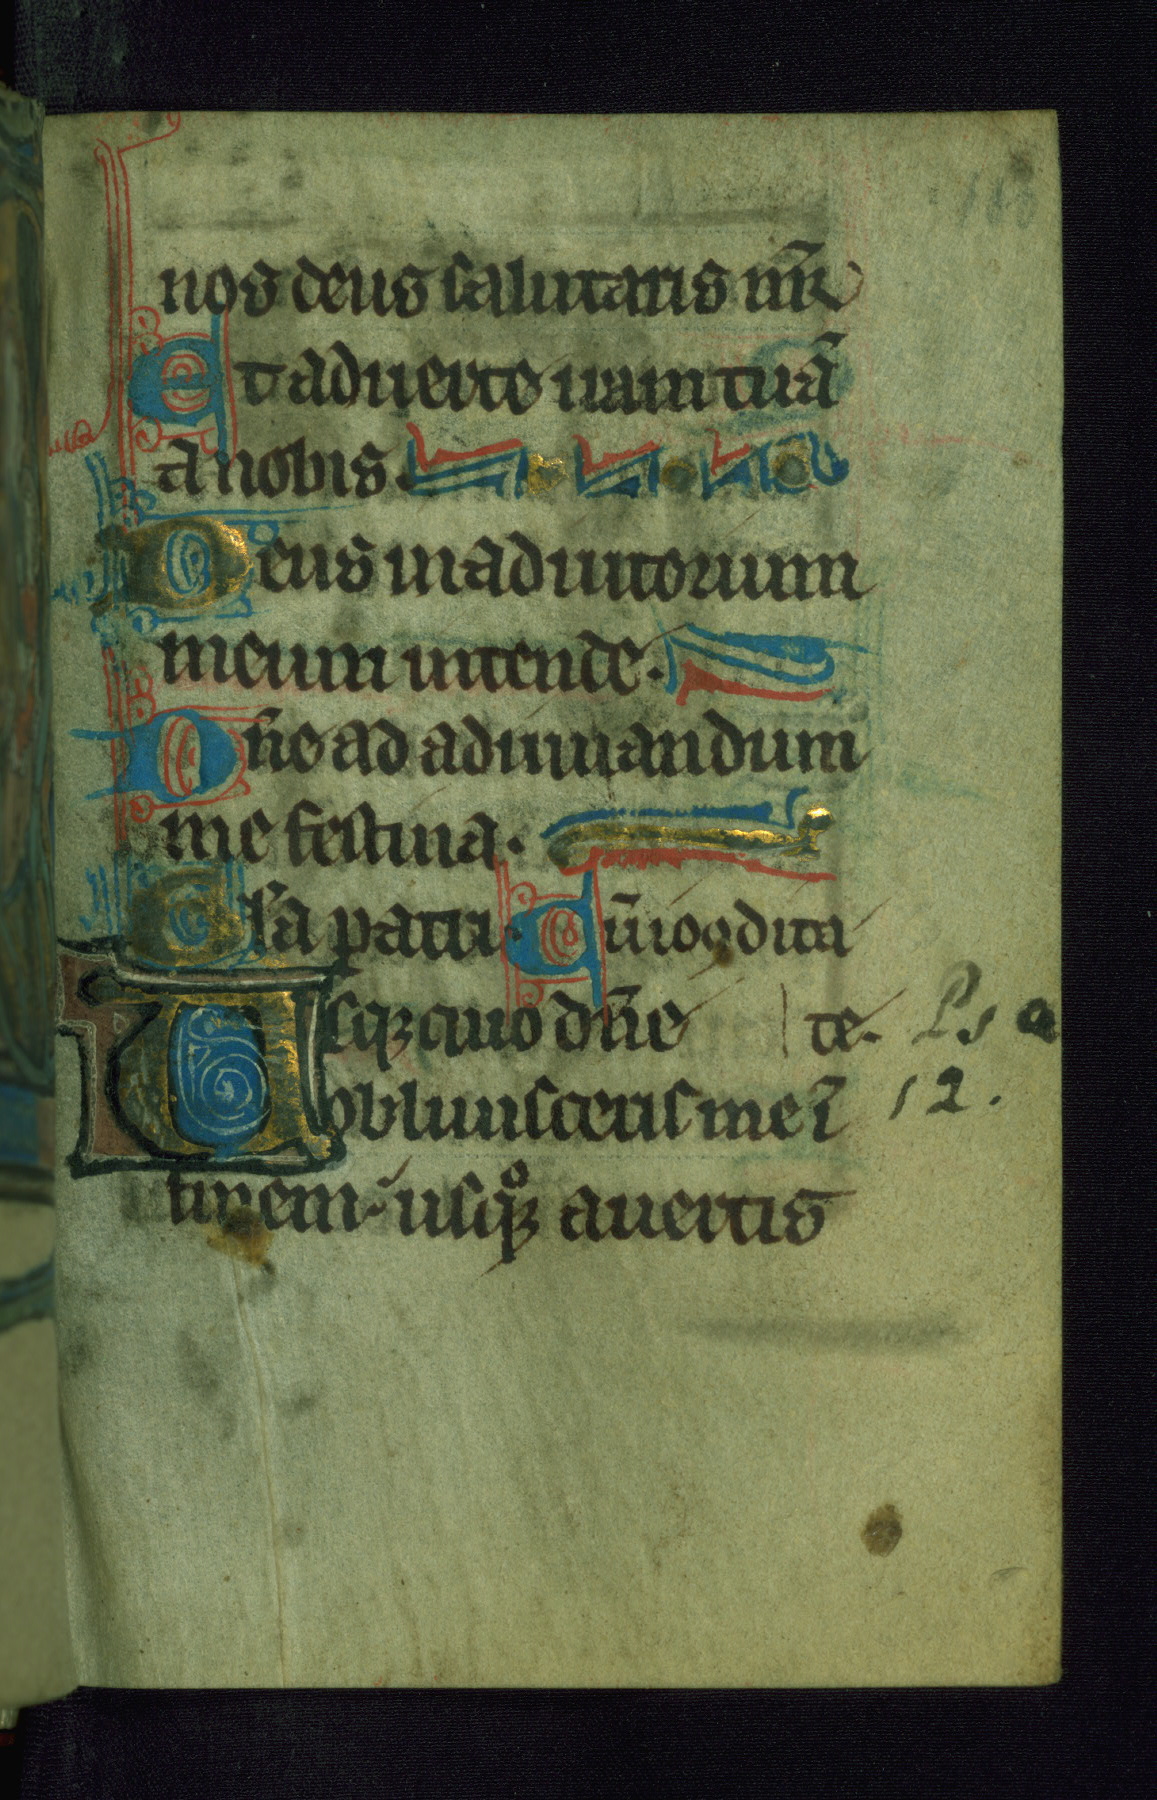 nos deus salutaris nr̄
Et aduerte iram tuā
a nobis.
Deus in adiutorium
meum intende.
Dn̄e ad adiuuandum
me festina.
Gl̄a patri. Qn̄ioodita
Usqȝ quo dn̄e te.
obliuisceris me ī
finem. usqͦȝ auertis
Ps a
12.